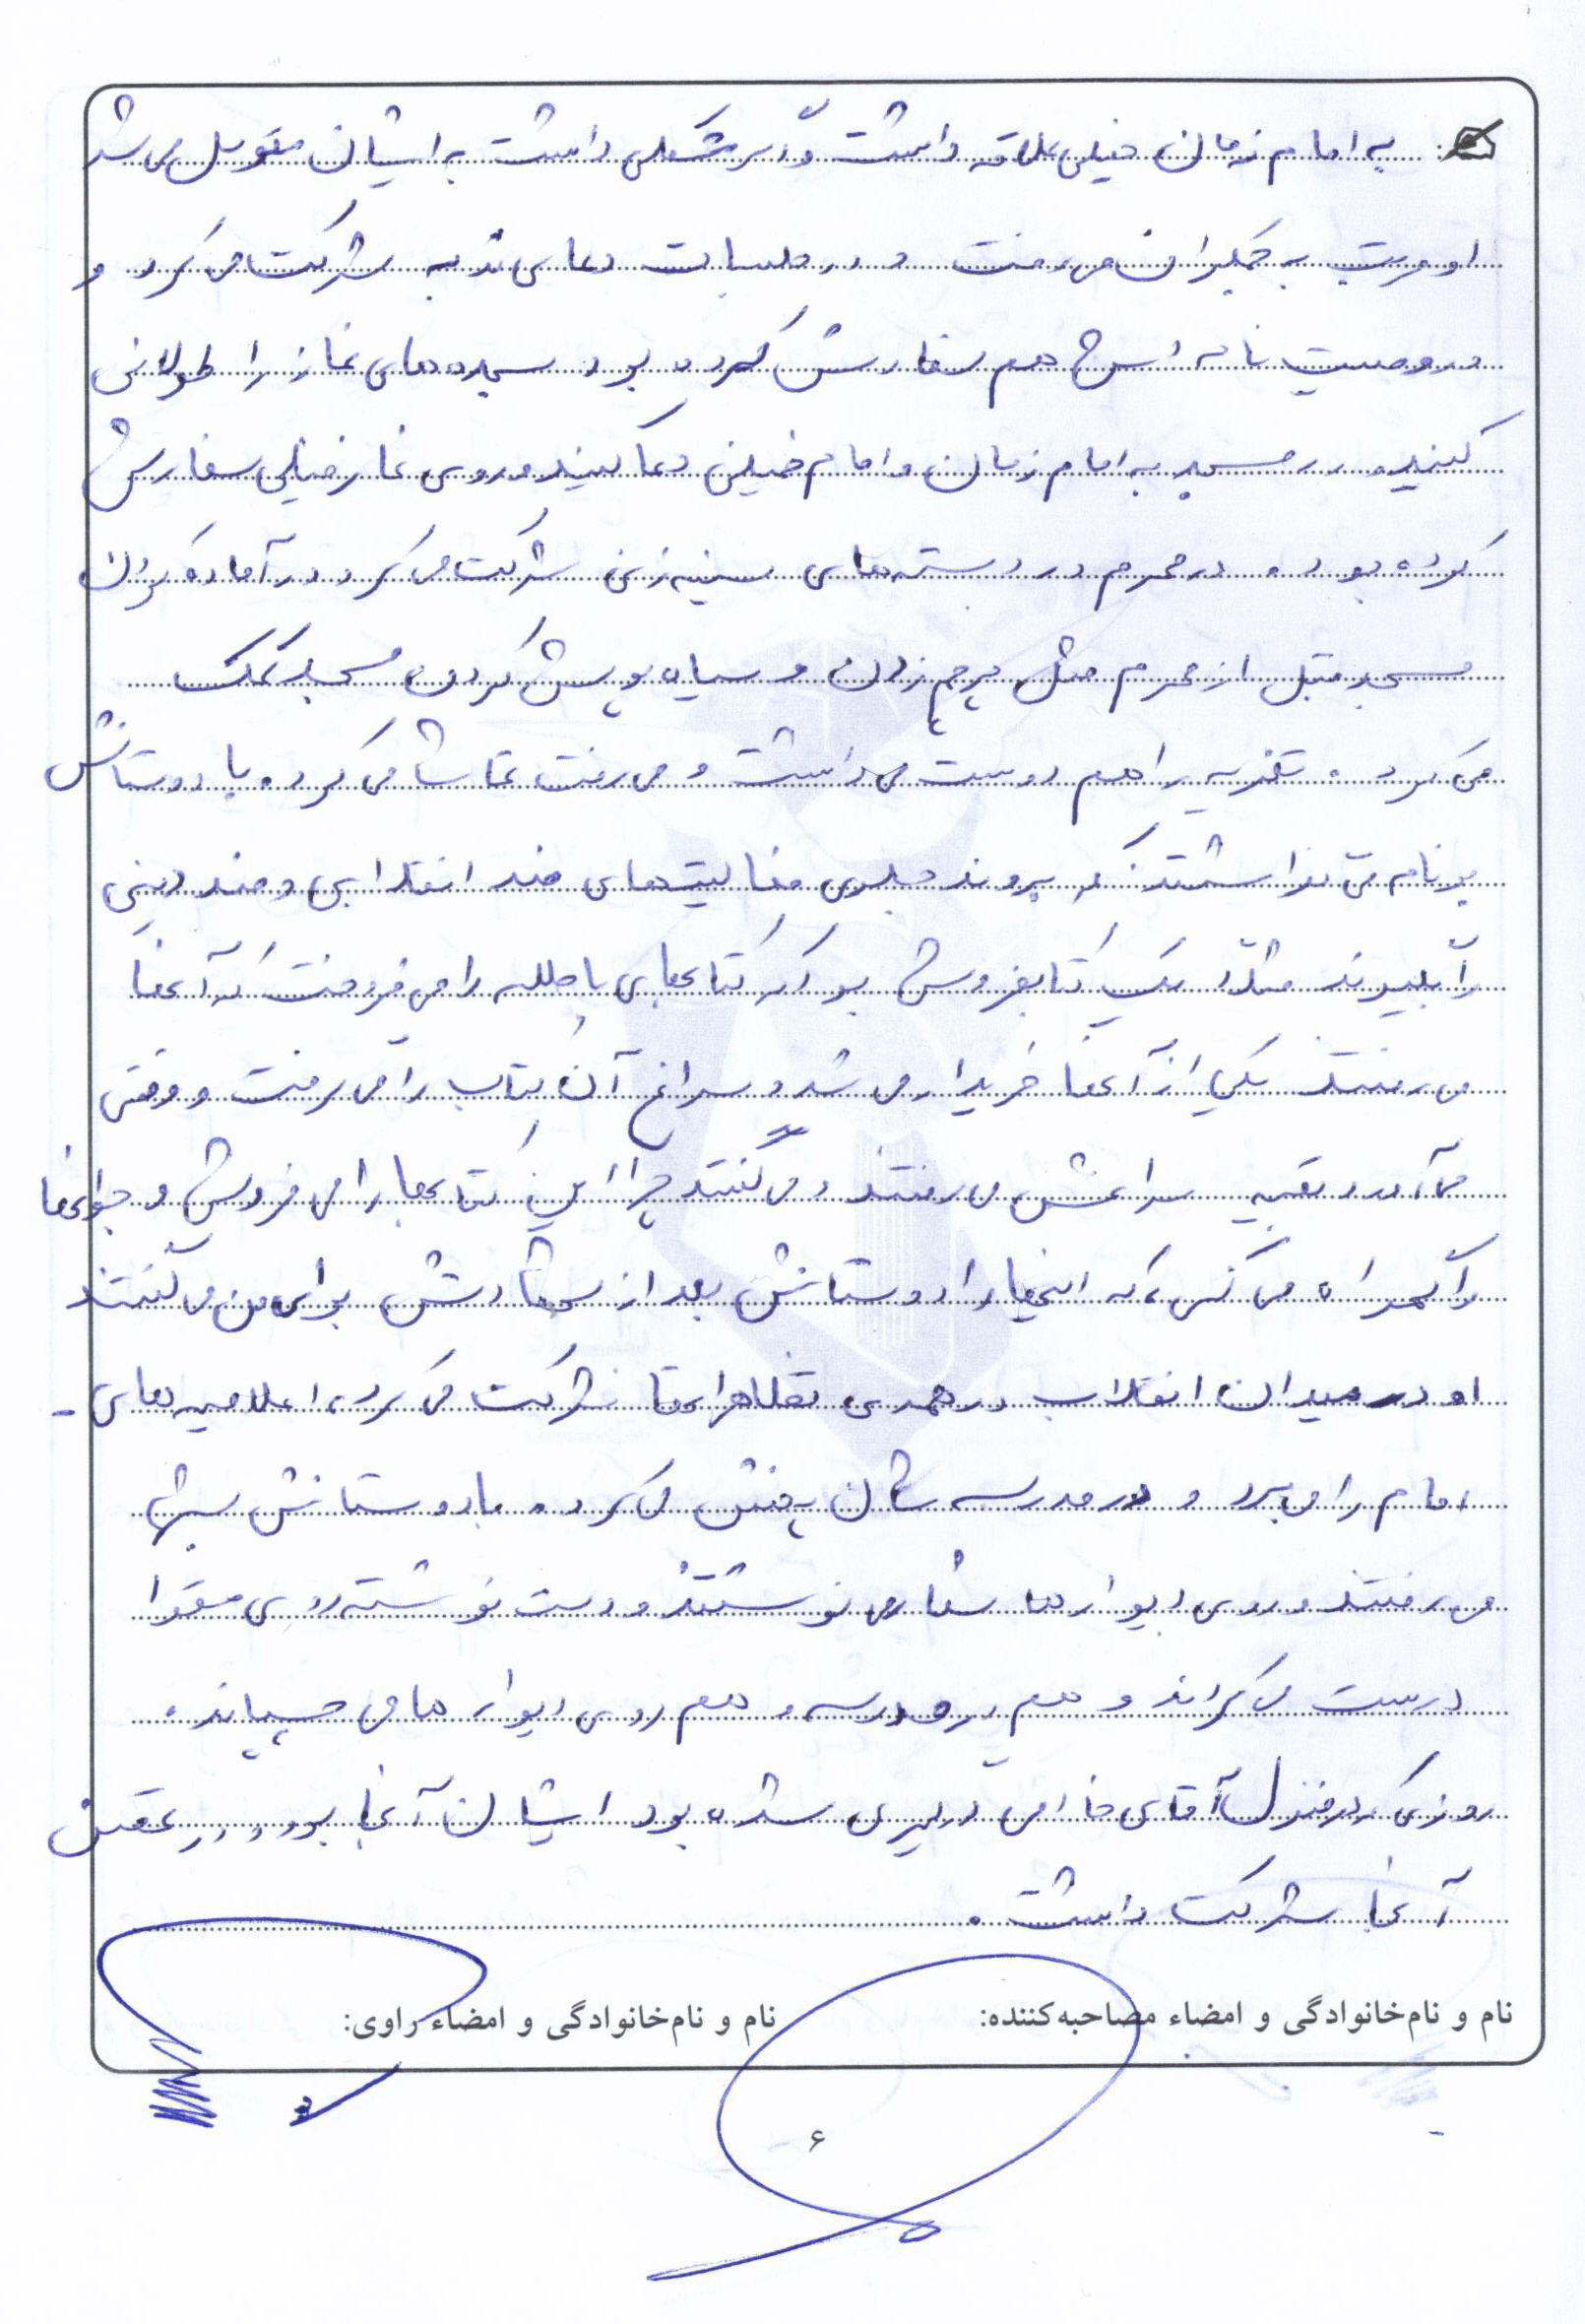 به امام زمان خیلی علاقه داشت و اگر مشکلی داشت به ایشان متوسل می‌شد
او مرتب به جمکران می‌رفت و در جلسات دعای ندبه شرکت می‌کرد و
در وصیت نامه اش هم سفارش کرده بود سجده‌های نماز را طولانی
کنید و در مسجد به امام زمان و امام خمینی دعا کنید و روی نماز خیلی سفارش
کرده بود. در محرم در دسته‌های سینه زنی شرکت می‌کرد و در آماده کردن
مسجد قبل از محرم مثل پرچم زدن و سیاه پوش کردن مسجد کمک
می‌کرد. تعزیه را هم دوست می‌داشت و می‌رفت تماشا می‌کرد. با دوستانش
برنامه می‌گذاشتند که بروند جلوی فعالیت‌های ضد انقلابی و ضد دینی
را بگیرند مثلاً یک کتابفروش بود که کتابهای باطله را می‌فروخت که آنها
می‌رفتند یکی از آنها خریدار می‌شد و سراغ آن کتاب را می‌رفت و وقتی
می‌آمد بقیه سراغش می‌رفتند و می‌گفتند چرا این کتابها را می‌فروشی و جوانها
را گمراه می‌کنی، که اینها را دوستانش بعد از شهادتش برای من می‌گفتند
او در میدان انقلاب در همه‌ی تظاهراتها شرکت می‌کرد، اعلامیه‌های
امام را می‌برد و در مدرسه شان پخش می‌کرد. با دوستانش شبها
می‌رفتند و روی دیوارها شعار می‌نوشتند و دست نوشته روی مقوا
درست می‌کردند و هم در مدرسه و هم روی دیوارها می‌چسباند.
روزی که در منزل آقای خادمی درگیری شده بود ایشان آنجا بود و در تحصن
آنجا شرکت داشت.
نام و نام‌خانوادگی و امضاء مصاحبه‌کننده:
نام و نام‌خانوادگی و امضاء راوی:
۶